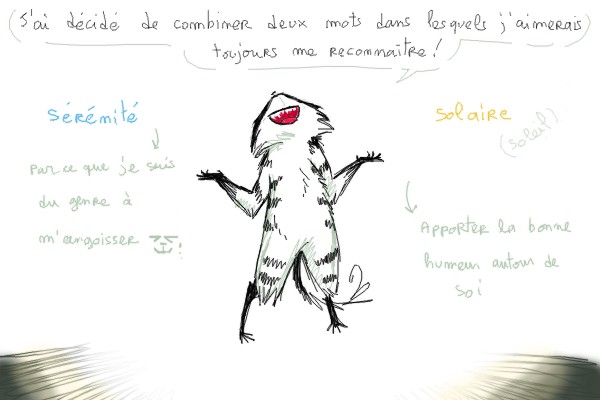 J'ai décidé de combiner deux mots dans lesquels j'aimerais
toujours me reconnaître !
Sérémité
Solaire
(soleil)
Parce que je suis
du genre à
m'angoisser !
Apporter la bonne
humeur autour de
soi